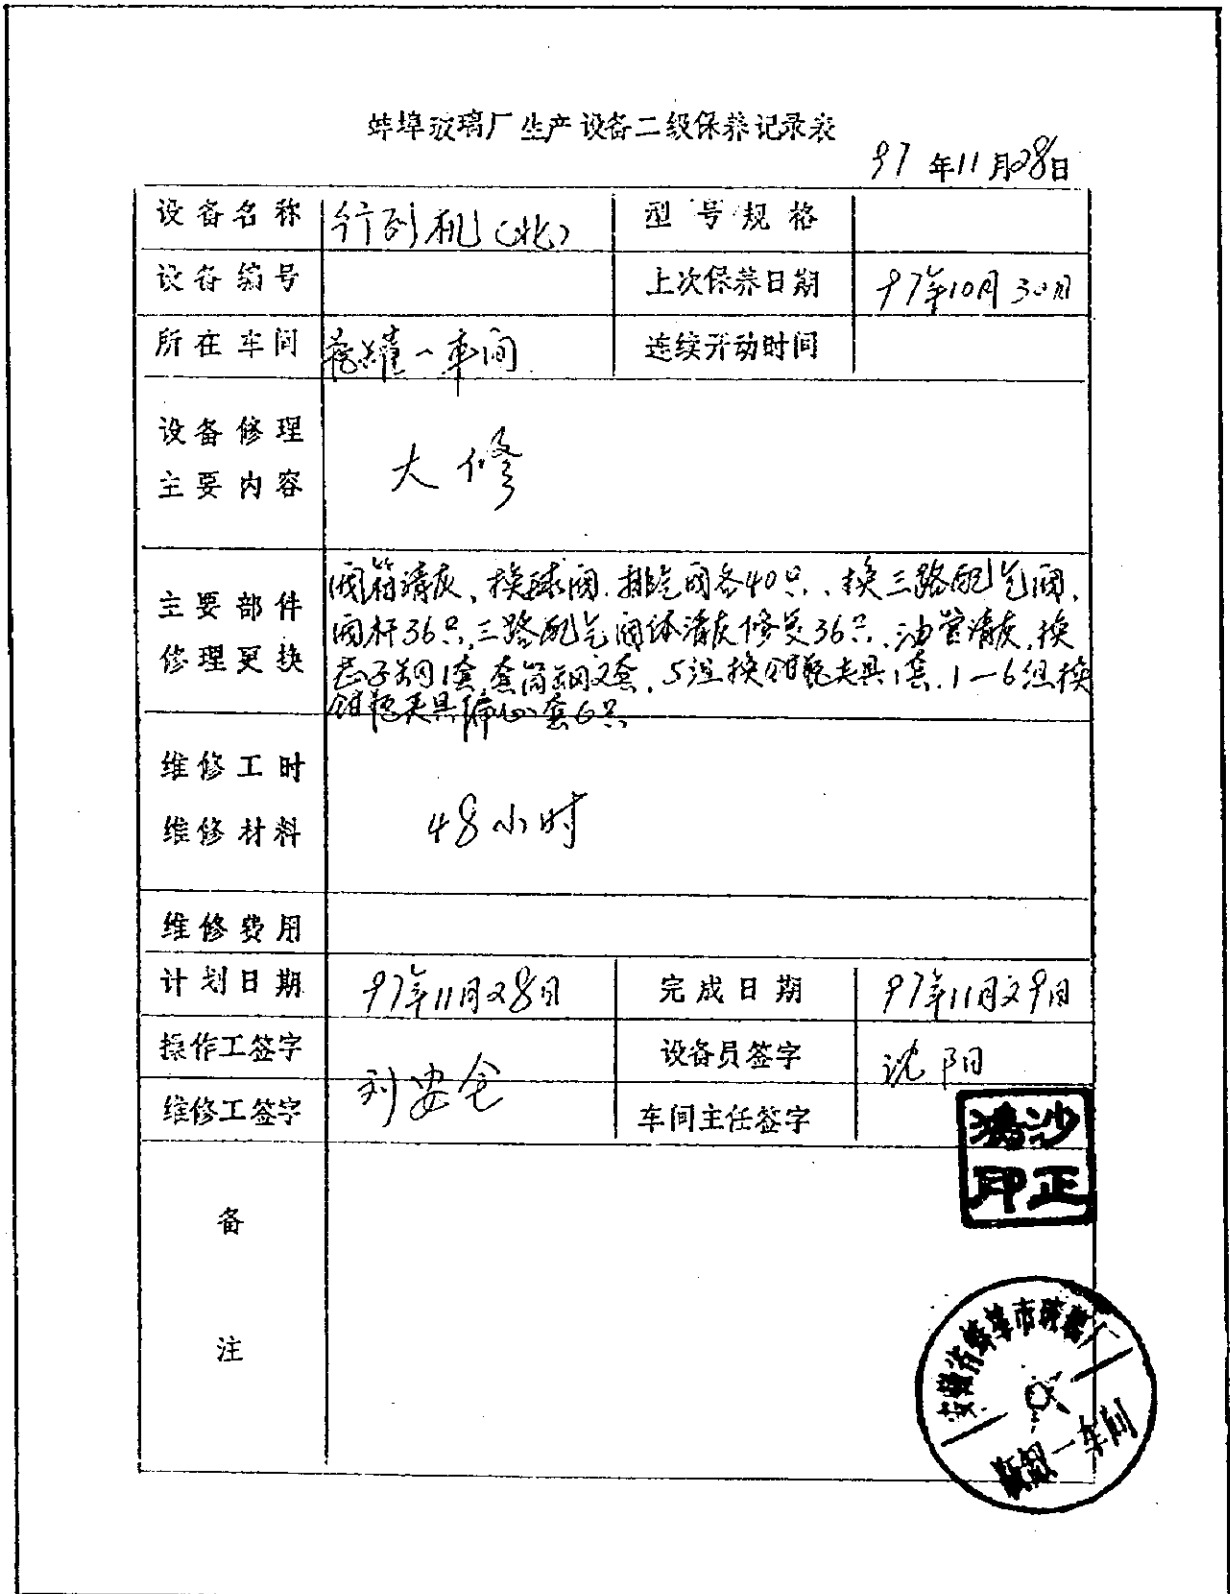 蚌埠玻璃厂生产设备二级保养记录表
97年11月28日
设备名称 行列机(北) 型号规格
设备编号 上次保养日期 97年10月30日
所在车间 一车间 连续开动时间
设备修理
主要内容
大修
主要部件
修理更换
阀箱清灰、换球阀.排气阀各40只、换三路配气阀、
阀杆36只,三路配气阀体清灰修复36只、油管清灰,换
芯子铜1套,套筒铜2套,5组换钳瓶夹具1套.1—6组换
钳瓶夹具偏心套6只
维修工时
维修材料
48小时
维修费用
计划日期 97年11月28日 完成日期 97年11月29日
操作工签字 设备员签字 沈阳
刘安全
维修工签字 车间主任签字
沙正鸿印
备
注
安徽省蚌埠市玻璃厂
一车间